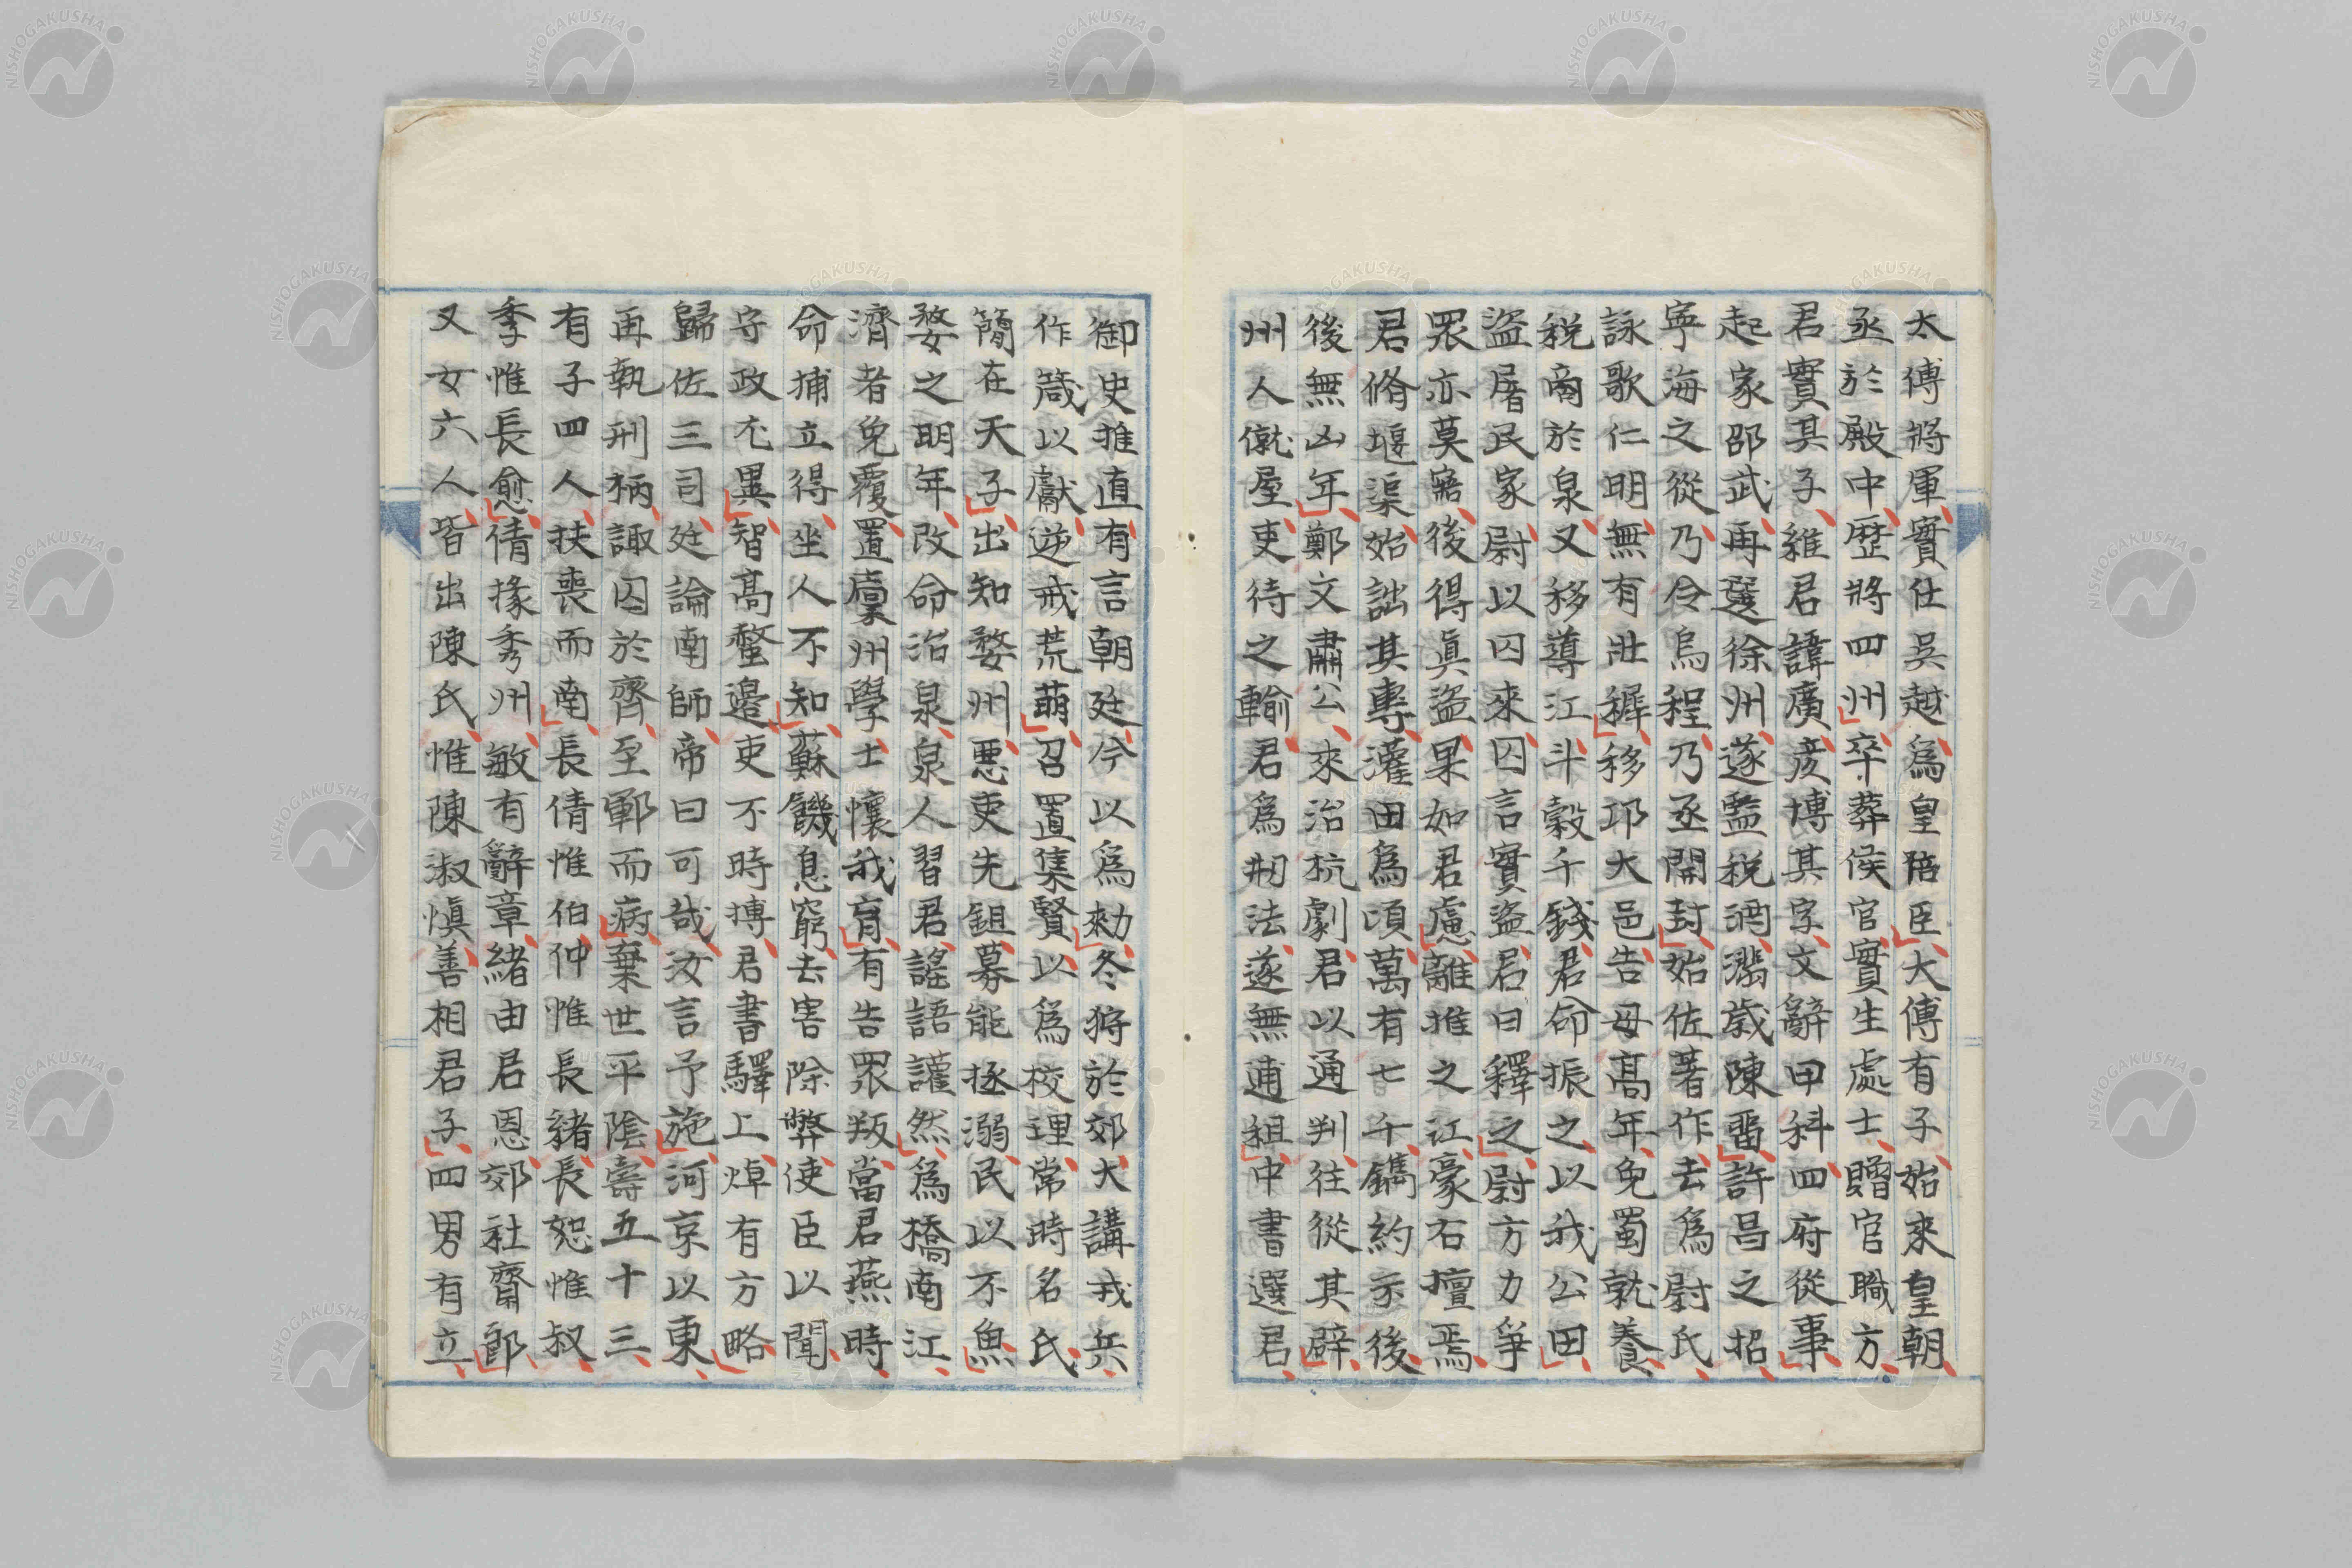 太傅將軍實仕吳越爲皇陪臣大傅有子始來皇朝
丞於殿中歷將四州卒葬侯官實生處士贈官職方
君實其子維君諱廣彦博其字文辭甲科四府從事
起家邵武再選徐州遂監税酒溺歲陳畨許昌之招
寧海之從乃令烏程乃丞開封始佐著作去爲尉氏
詠歌仁明無有壯穉移邛大邑告母髙年免蜀就養
税商於泉又移導江斗穀千錢君命振之以我公田
盜屠民家尉以囚來囚言實盜君曰釋之尉方力爭
衆亦莫寤後得眞盜果如君慮離推之訌豪右擅焉
君脩堰渠始詘其專灌田爲頃萬有七千鐫約示後
後無凶年鄭文肅公來治杭劇君以通判往從其辟
州人僦屋吏待之輸君爲刱法遂無逋租中書選君
御史推直有言朝廷今以爲勑冬狩於郊大講戎兵
作箴以獻逆戒荒萌召置集賢以爲校理常時名氏
簡在天子出知婺州悪吏先鉏募能拯溺民以不魚
婺之明年改命治泉泉人習君謠語讙然爲橋南江
濟者免覆置稟州學士懷我育有告衆叛當君燕時
命捕立得坐人不知蘇饑息窮去害除弊使臣以聞
守政尤異智髙螫邉吏不時摶君書驛上焯有方略
歸佐三司廷論南師帝曰可哉汝言予施河京以東
再執刑柄諏囚於齊至鄆而病棄世平陰壽五十三
有子四人扶喪而南長倩惟伯仲惟長緒長恕惟叔
季惟長愈倩掾秀州敏有辭章緒由君恩郊社齋郎
又女六人皆出陳氏惟陳淑愼善相君子四男有立